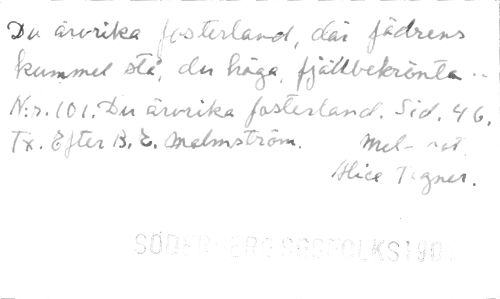 Du ärorika fosterland, där fädrens
kummel stå, du höga, fjällbekrönta..
N:r. 101. Du ärorika fosterland. Sid. 46.
Tx. Efter B. E. Malmström. Mel-
Alice Tegner.